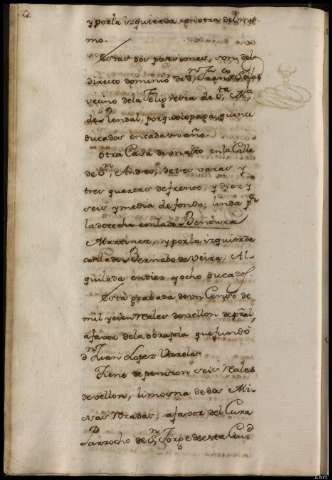 y por la izquierda con otra del mis
mo.
Estas dos porciones, son del
directo dominio de
vecino de la Felig.ª de S.ta M.ª
de Lendal, por quien paga quince
ducados en cada un año.
Otra Casa de un alto en la Calle
de S.n Andres, de tres varas y
tres quartas de frente, y diez y
seis y media de fondo; linda p.r
la derecha con la de Benita
Martinez, y por la izquierda
con la de Bernabe de Veira, Al
quilada en diez y ocho ducados
Esta grabada de un Censo de
mil y cien Reales de vellon de pral
a favor de la obra pia que fundó
d.n Juan Lopez
Tiene de pension seis Reales
de vellon, limosna de dos Mi
sas Rezadas, a favor del Cura
Parrocho de S.n Jorge de esta Ciud.d